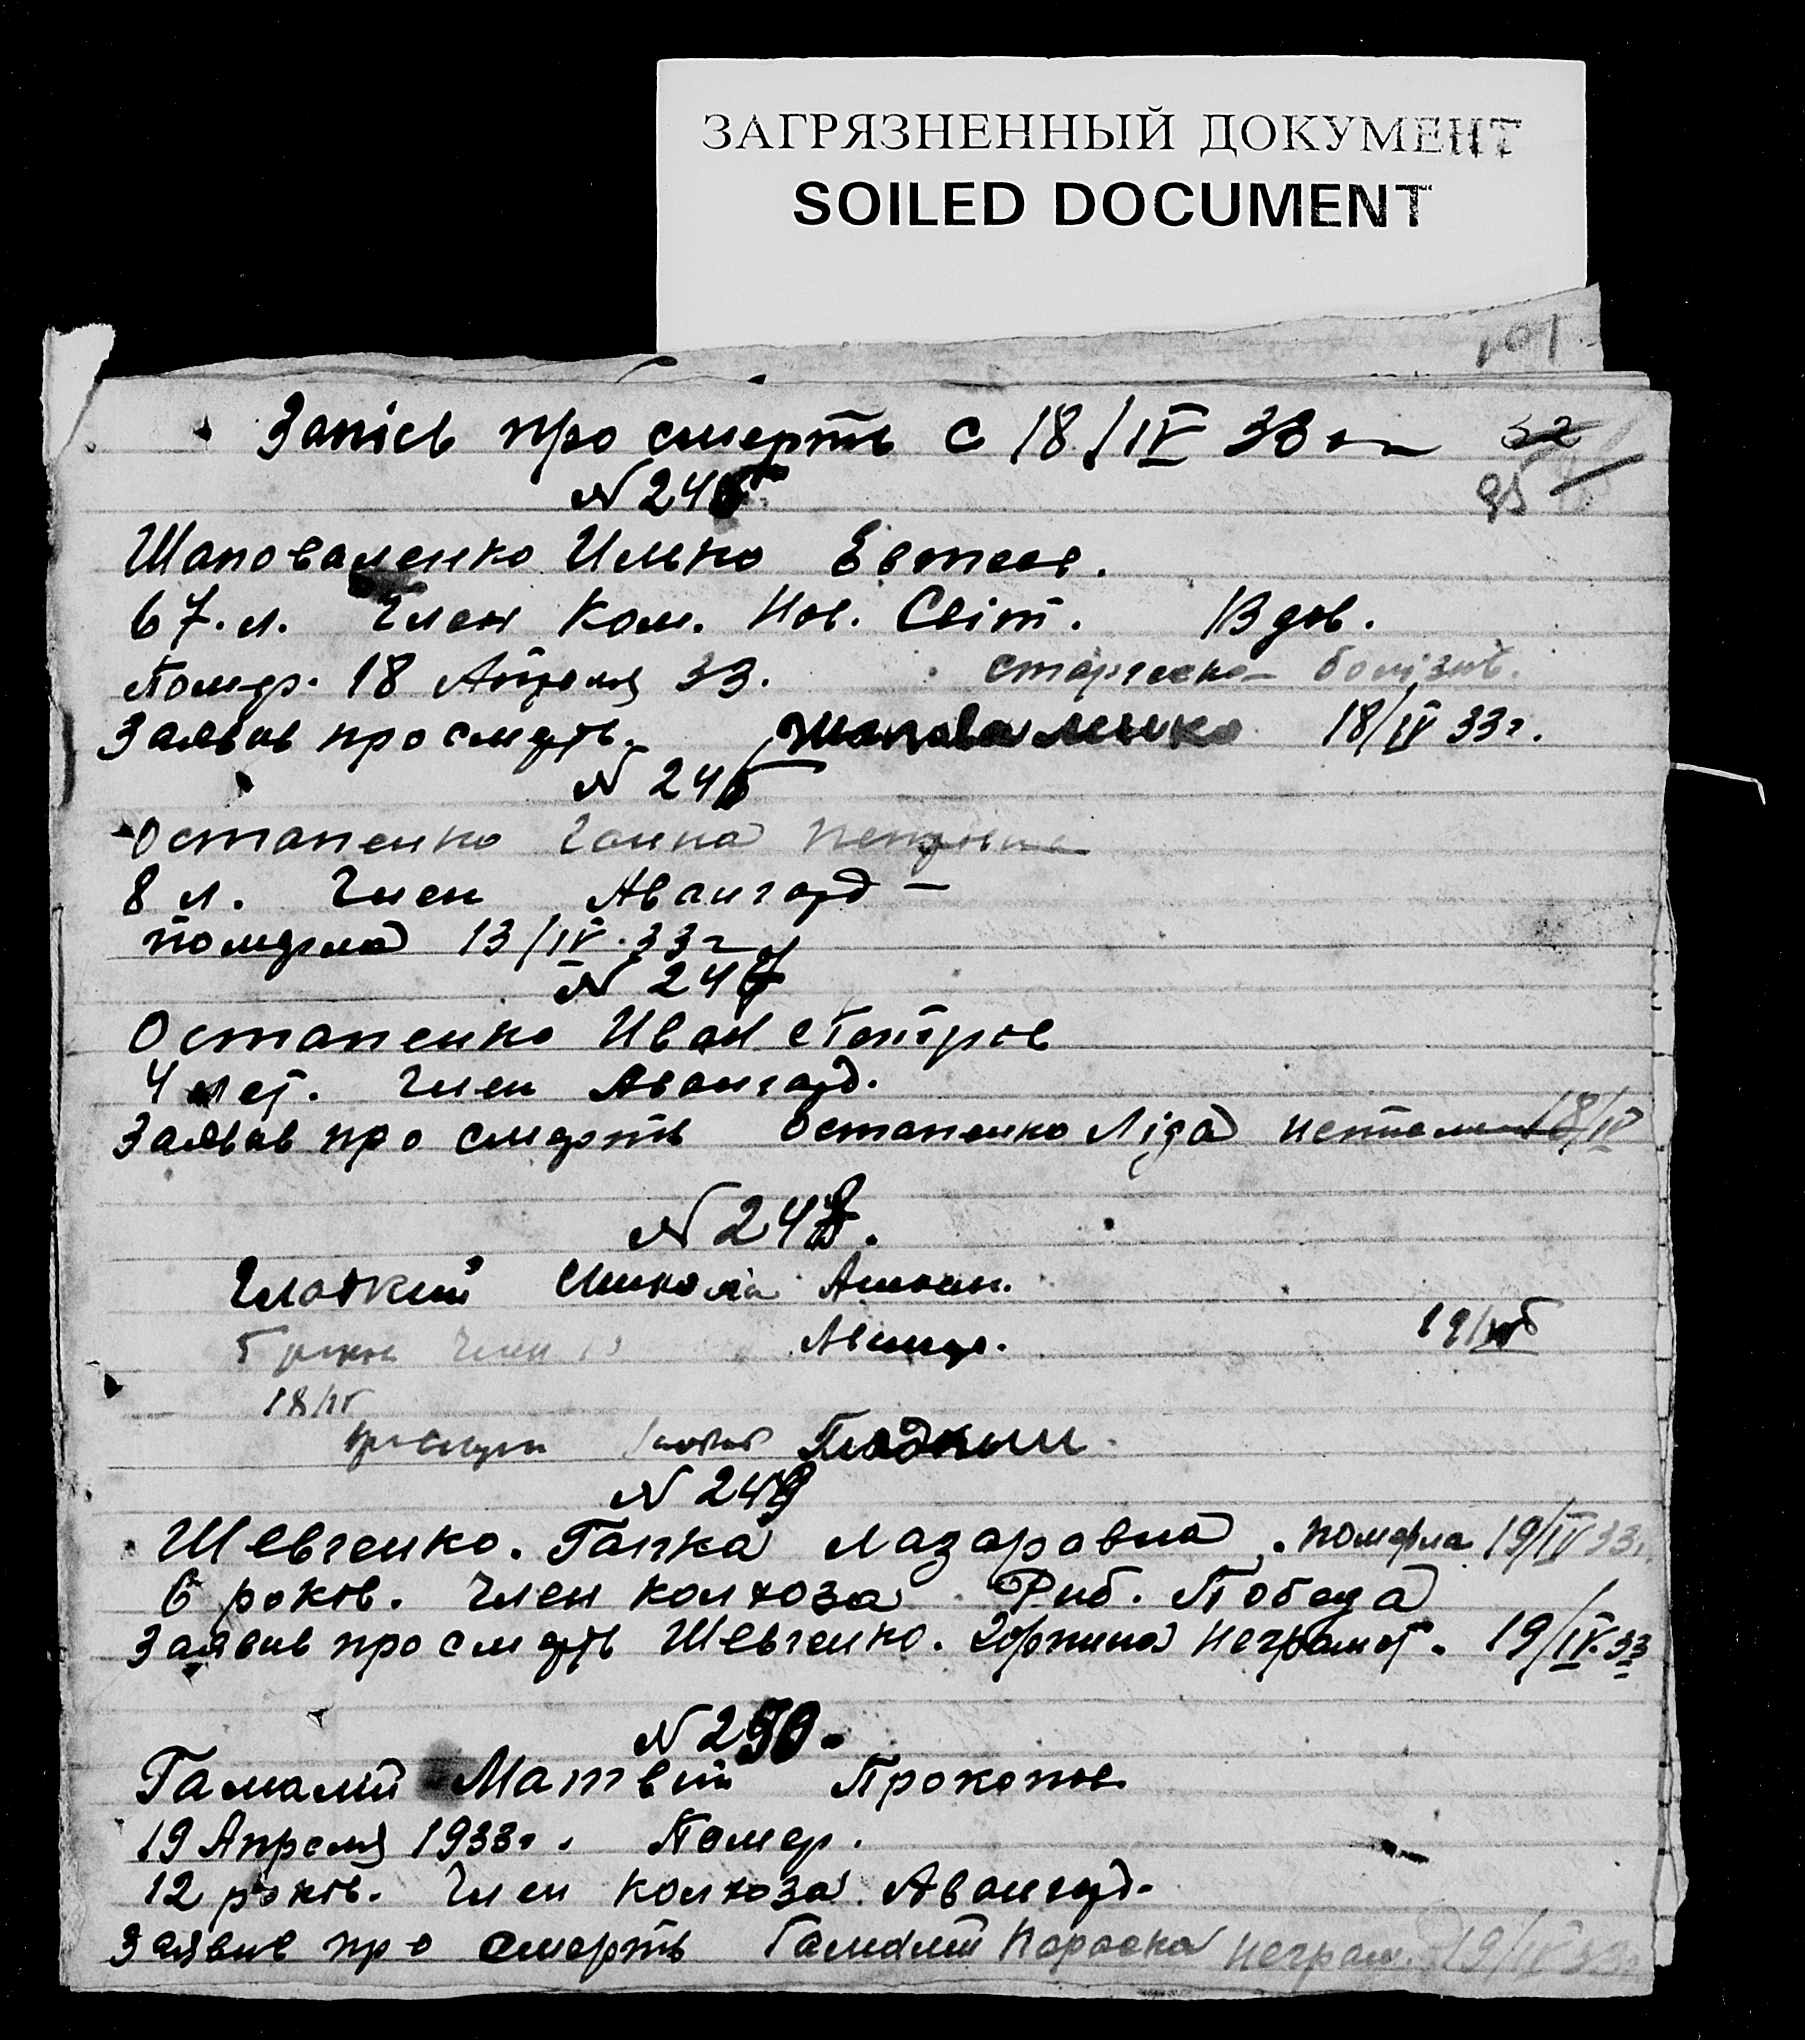 ЗАГРЯЗНЕННЫЙ ДОКУМЕНТ
SOILED DOCUMENT
101
Запісь про смерть с 18/IV 33 г
32
95
N 245
Шаповаленко Илько Евтеев.
67. л. Член Ком. Нов. Світ. Вдов.
Помер. 18 Апреля 33. старческо- болізнь.
Заявив про смерть. Шаповаленко 18/IV 33 г.
N 246
Остапенко Ганна
8 л. Член Авангард —
померла 13/IV. 33 г
N 247
Остапенко Иван Петров
4 лет. Член Авангард.
Заявив про смерть Остапенко Ліда 18/IV
N 248.
Гладкий Микола
Член Авангар.
18/IV
Гладкий
N 249
Шевченко. Ганка Лазаровна. померла 19/IV 33.
6 років. Член колхоза Риб. Победа
Заявив про смерть Шевченко. неграмот. 19/IV. 33
N 250.
Гамалий Матвий Прокопов
19 Апреля 1933 г. Помер.
12 років. Член колхоза Авангард.
Заявив про смерть Гамалий Параска неграм. 19/IV 33